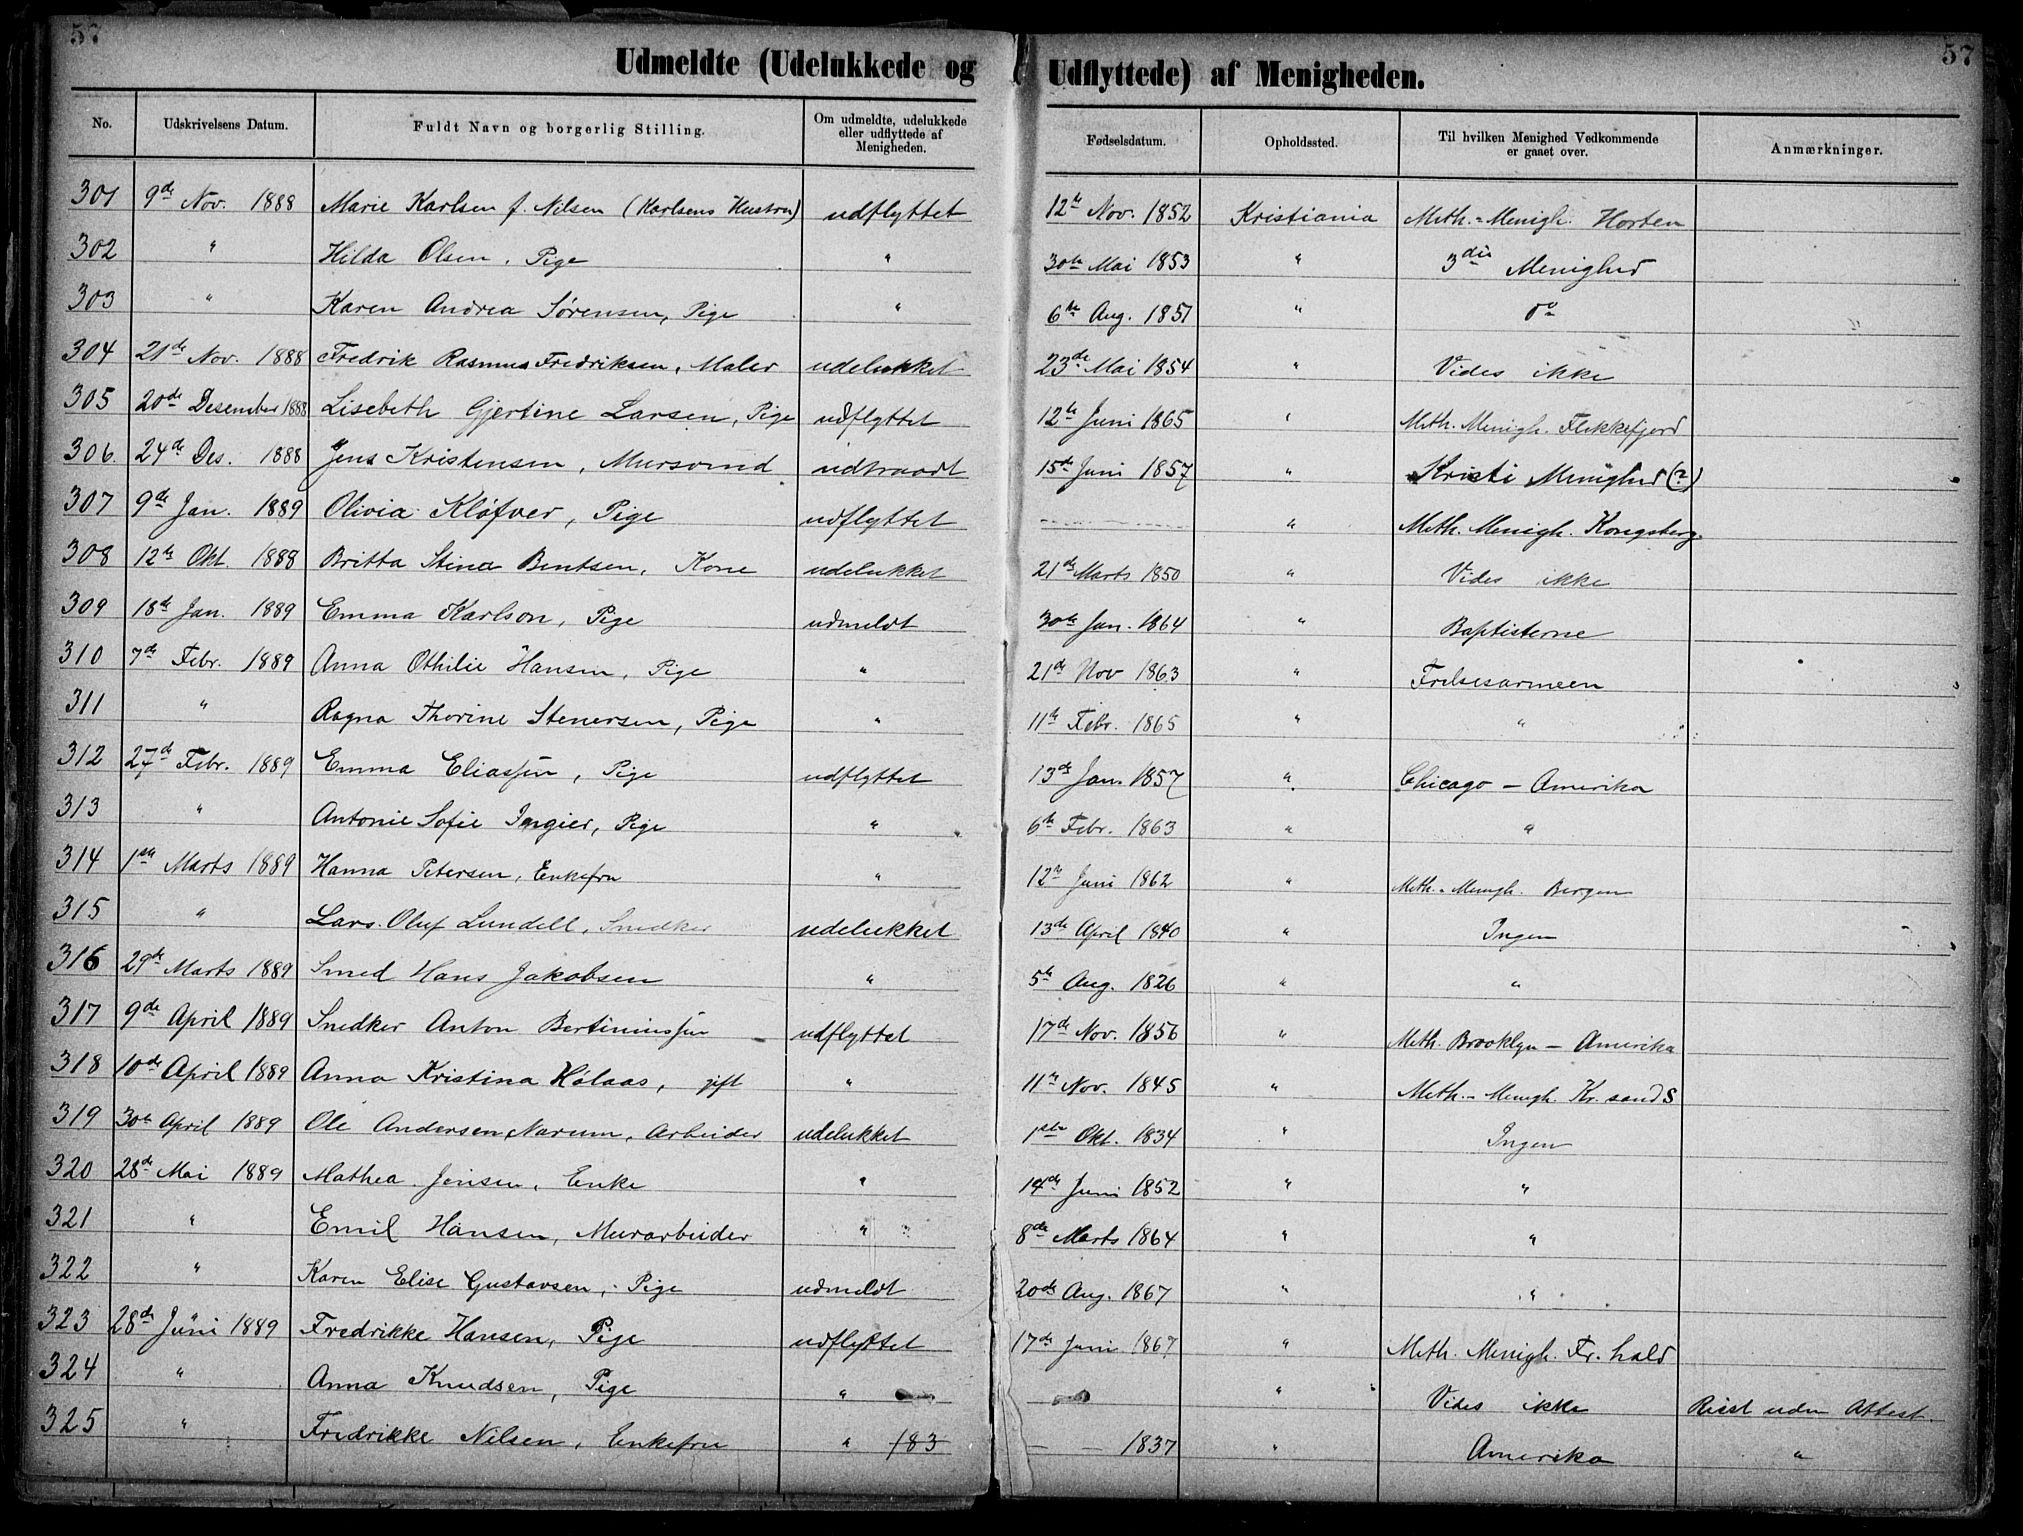 57 57
Udmeldte (Udelukkede og Udflyttede) af Menigheden.
No. Udskrivelsens Datum. Fuldt Navn og borgerlig Stilling. Om udmeldte, udelukkede eller udflyttede af Menigheden. Fødselsdatum. Opholdssted. Til hvilken Menighed Vedkommende er gaaet over. Anmærkninger.
301 9de Nov. 1888 Marie Karlsen f. Nilsen (Karlsens Hustru) udflyttet 12te Nov. 1852 Kristiania Meth.-Menigh. Horten
302 " Hilda Olsen, Pige " 30te Mai 1853 " 3die Menighed
303 " Karen Andrea Sørensen, Pige " 6te Aug. 1851 " do
304 21de Nov. 1888 Fredrik Rasmus Fredriksen, Maler udelukket 23de Mai 1854 " Vides ikke
305 20de Desember 1888 Lisebeth Gjertine Larsen, Pige udflyttet 12te Juni 1865 " Meth. Menigh. Flekkefjord
306. 24de Des. 1888 Jens Kristensen, Mursvend udtraadt 15de Juni 1857 " Kristi Menighed (?)
307 9de Jan. 1889 Olivia Kløfver, Pige udflyttet " Meth. Menigh. Kongsberg.
308 12te Okt. 1888 Britta Stina Bentsen, Kone udelukket 21de Marts 1850 " Vides ikke
309 18de Jan. 1889 Emma Karlson, Pige udmeldt 30te Jan. 1864 " Baptisterne
310 7de Febr. 1889 Anna Othilie Hansen, Pige " 21de Nov 1863 " Frelsesarmeen
311 " Ragna Thorine Stenersen, Pige " 11te Febr. 1865 " "
312 27de Febr. 1889 Emma Eliassen, Pige udflyttet 13de Jan. 1857 " Chicago - Amerika
313 " Antonie Sofie Ingier, Pige " 6te Febr. 1863 " "
314 1ste Marts 1889 Hanna Petersen, Enkefru " 12te Juni 1862 " Meth.-Menigh. Bergen
315 " Lars Oluf Lundell, Snedker udelukket 13de April 1840 " Ingen
316 29de Marts 1889 Smed Hans Jakobsen " 5te Aug. 1826 " "
317 9de April 1889 Snedker Anton Bertiniussen udflyttet 17de Nov. 1856 " Meth. Brooklyn - Amerika
318 10de April 1889 Anna Kristina Hólaas, gift " 11te Nov. 1845 " Meth.-Menigh. Kr.sand S
319 30te April 1889 Ole Andersen Narum, Arbeider udelukket 1ste Okt. 1834 " Ingen
320 28de Mai 1889 Mathea Jensen, Enke " 14de Juni 1852 " "
321 " Emil Hansen, Murarbeider " 8de Marts 1864 " "
322 " Karen Elise Gustavsen, Pige udmeldt 20de Aug. 1867 " "
323 28de Juni 1889 Fredrikke Hansen, Pige udflyttet 17de Juni 1867 " Meth. Menigh. Fr.hald
324 " Anna Knudsen, Pige " " Vides ikke Reist uden Attest.
325 " Fredrikke Nilsen, Enkefru " 183 - - 1837 " Amerika "